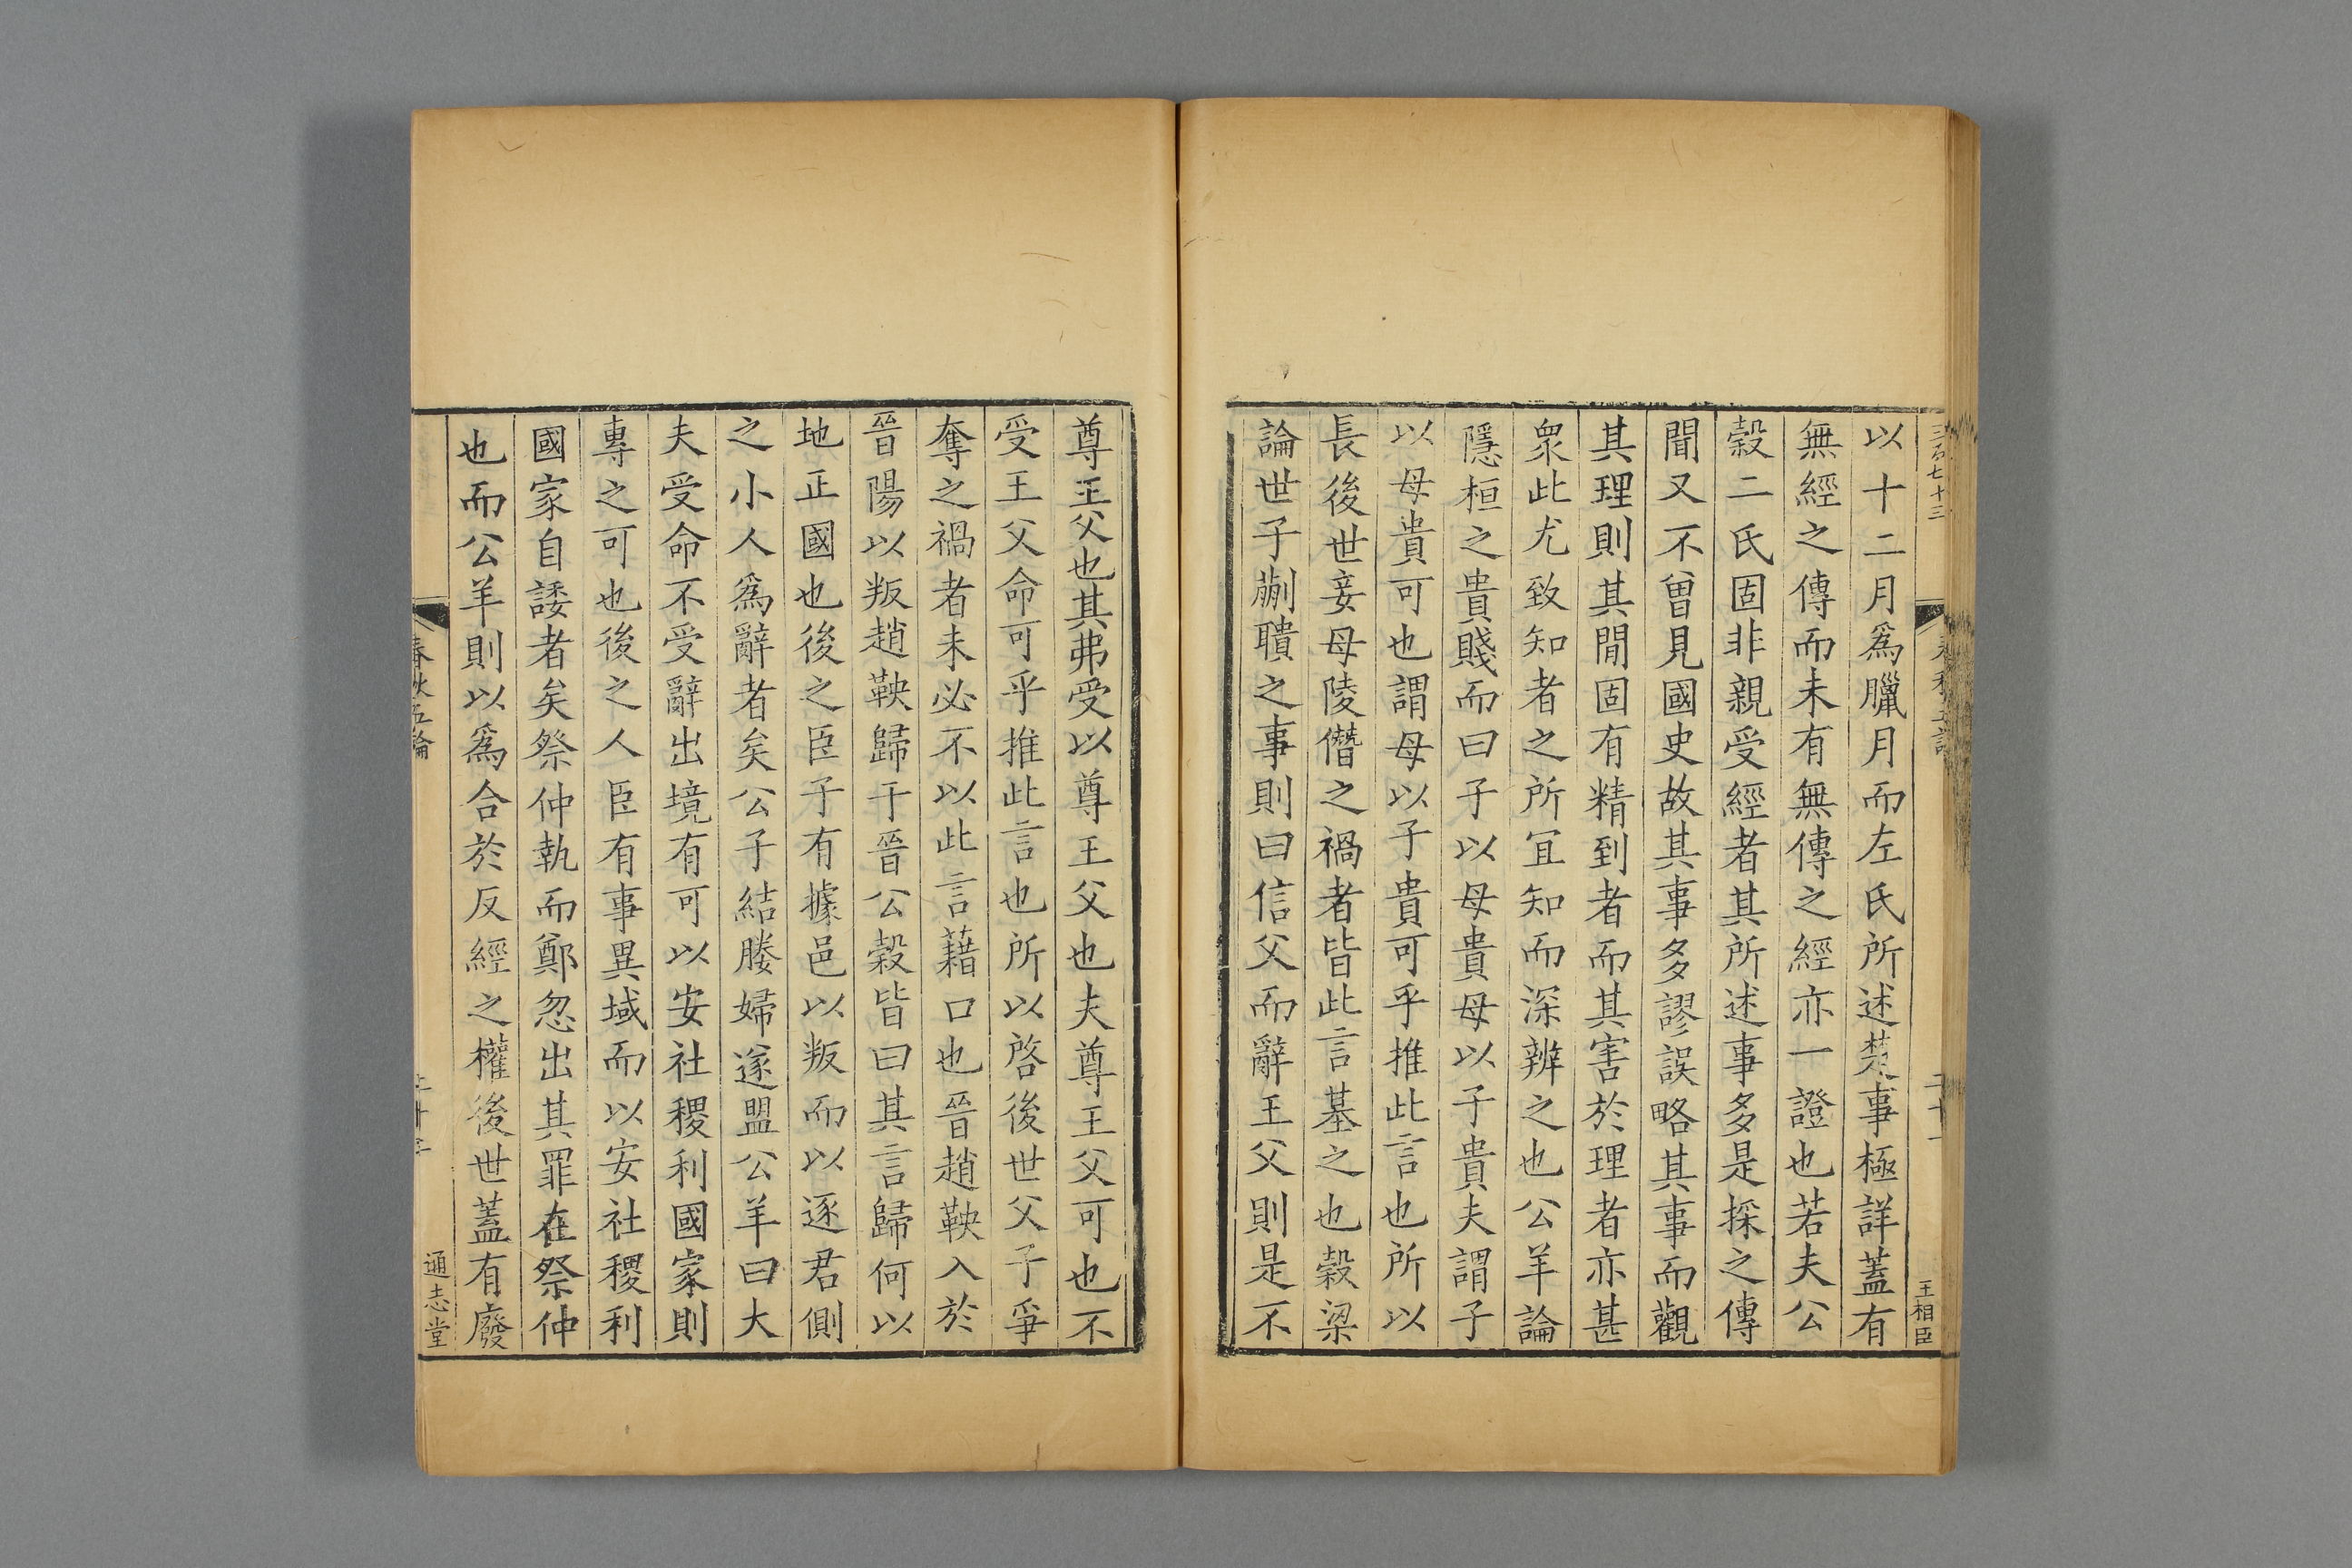 三百七十三
以十二月爲臘月而左氏所述楚事極詳蓋有
無經之傳而未有無傳之經亦一證也若夫公
穀二氏固非親受經者其所述事多是採之傳
聞又不曾見國史故其事多謬誤略其事而觀
其理則其間固有精到者而其害於理者亦甚
衆此尤致知者之所宜知而深辨之也公羊論
隱桓之貴賤而曰子以母貴母以子貴夫謂子
以母貴可也謂母以子貴可乎推此言也所以
長後世妾母陵僭之禍者皆此言基之也穀梁
論世子蒯聵之事則曰信父而辭王父則是不
王相臣
尊王父也其弗受以尊王父也夫尊王父可也不
受王父命可乎推此言也所以啓後世父子爭
奪之禍者未必不以此言藉口也晉趙鞅入於
晉陽以叛趙鞅歸于晉公穀皆曰其言歸何以
地正國也後之臣子有據邑以叛而以逐君側
之小人爲辭者矣公子結媵婦遂盟公羊曰大
夫受命不受辭出境有可以安社稷利國家則
專之可也後之人臣有事異域而以安社稷利
國家自諉者矣祭仲執而鄭忽出其罪在祭仲
也而公羊則以爲合於反經之權後世蓋有廢
春秋五論
通志堂